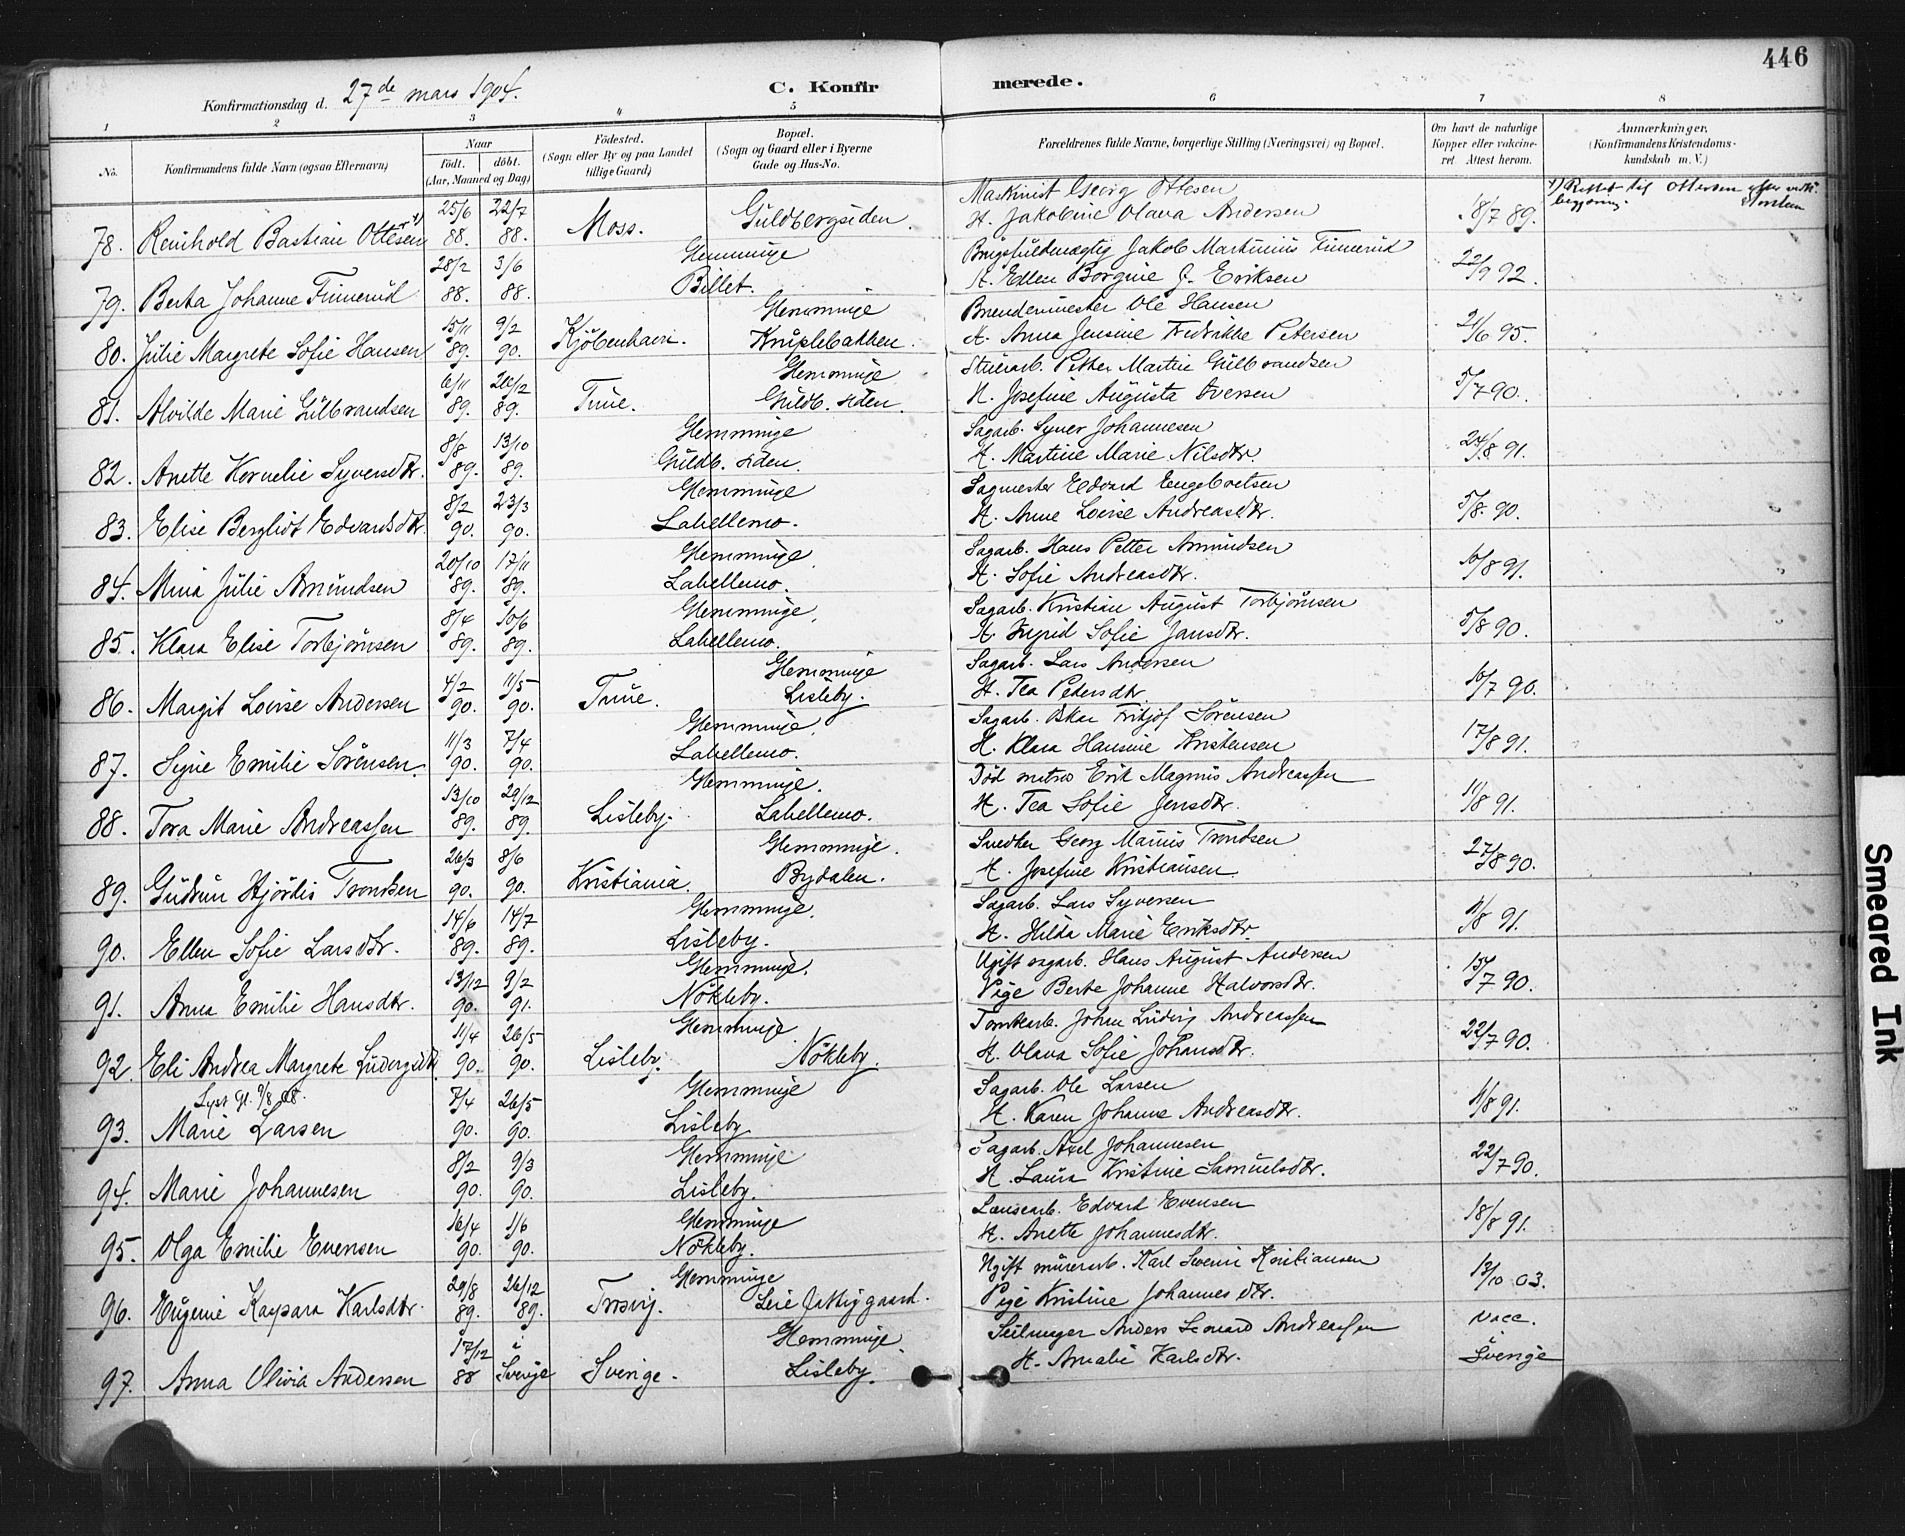 446
Konfirmationsdag d. 27de mars 1904.
C. Konfirmerede.
1 2 3 4 5 6 7 8
No. Konfirmandens fulde Navn (ogsaa Efternavn) Naar födt. döbt. (Aar, Maaned og Dag) Födested. (Sogn eller By og paa Landet tillige Gaard) Bopæl. (Sogn og Gaard eller i Byerne Gade og Hus-No. Forældrenes fulde Navne, borgerlige Stilling (Næringsvei) og Bopæl. Om havt de naturlige Kopper eller vakcineret. Attest herom. Anmærkninger. (Konfirmandens Kristendomskundskab m. V.)
25/6 22/7 Maskinist Georg Ottesen 1) Rettet til Ottersen efter
78. Reinhold Bastian Ottesen 1) 88. 88. Moss. Guldbergsiden. H. Jakobine Olava Andersen 18/7 89. begjæring.
28/2 3/6 Glemminge Brugsfuldmægtig Jakob Martinius Finnerud
79. Berta Johanne Finnerud 88. 88. Billet. H. Ellen Borgine f. Eriksen 22/9 92.
15/11 9/2 Glemminge Brendemester Ole Hansen
80. Julie Margrete Sofie Hansen 89. 90. Kjöbenhavn. Kniplebakken. H. Anna Jensine Fredrikke Petersen 21/6 95.
6/11 26/2 Glemminge Stuerarb. Petter Martin Gulbrandsen
81. Alvilde Marie Gulbrandsen 89. 89. Tune. Guldb. siden. H. Josefine Augusta Iversen 5/7 90.
8/8 13/10 Glemminge Sagarb. Syver Johannesen
82. Anette Kornelie Syversdtr. 89. 89. Guldb. siden. H. Martine Marie Nilsdtr. 24/8 91.
8/2 23/3 Glemminge Sagmester Edvard Engebretsen
83. Elise Bergliot Edvardsdtr. 90. 90. Labellemo. H. Anne Lovise Andreasdtr. 5/8. 90.
20/10 17/11 Glemminge. Sagarb. Hans Petter Amundsen
84. Mina Julie Amundsen 89. 89. Labellemo. H. Sofie Andreasdtr. 10/8 91.
8/4 10/6 Glemminge. Sagarb. Kristian August Torbjörnsen
85. Klara Elise Torbjörnsen 89. 89. Labellemo. H. Ingrid Sofie Jansdtr. 5/8 90.
4/2 11/5 Glemminge Sagarb. Lars Andersen
86. Margit Lovise Andersen 90. 90. Tune. Lisleby. H. Tea Petersdtr 10/7 90.
11/3 7/4 Glemminge. Sagarb. Oskar Fritjof Sörensen
87. Signe Emilie Sörensen. 90. 90. Labellemo. H. Klara Hansine Kristensen 17/8 91.
13/10 29/12 Glemminge. Död matros Erik Magnus Andreassen
88. Tora Marie Andreassen 89. 89. Lisleby. Labellemo. H. Tea Sofie Jensdtr. 11/8 91.
26/3 8/6 Glemminge. Snedker Georg Marius Trondsen
89. Gudrun Hjördis Trondsen 90. 90. Kristiania. Bydalen. H. Josefine Kristiansen 27/8 90.
14/6 14/7 Glemminge. Sagarb. Lars Syversen
90. Ellen Sofie Larsdtr. 89. 89. Lisleby. H. Hilda Marie Eriksdtr. 11/8 91.
13/12 9/2 Glemminge. Ugift sagarb. Hans August Andersen
91. Anna Emilie Hansdtr. 90. 91. Nökleby. Pige Berte Johanne Halvorsdtr. 15/7 90.
11/4 26/5 Glemminge Tomtearb. Johan Ludvig Andreassen
92. Eli Andrea Margrete Ludvigsdtr. 90. 90. Lisleby. Nökleby. H. Olava Sofie Johansdtr. 22/7 90.
Lyst gl. 9/8 08. 7/4 26/5 Glemminge Sagarb. Ole Larsen
93. Marie Larsen 90. 90. Lisleby H. Karen Johanne Andreasdtr. 11/8 91.
8/2 9/3 Glemminge Sagarb. Axel Johannesen
94. Marie Johannesen 90. 90. Lisleby. H. Laura Kristine Samuelsdtr. 22/7 90.
16/4 1/6 Glemminge Lænsearb. Edvard Evensen
95. Olga Emilie Evensen 90. 90. Nökleby. H. Anette Johannesdtr. 18/8 91.
29/8 26/12 Glemminge Ugift murerarb. Karl Severin Kristiansen
96. Eugenie Kaspara Karlsdtr. 89. 89. Trosvig. Leie Fattiggaard. Pige Kristine Johannesdtr. 13/10 03.
17/12 i Glemminge. Seilmager Anders Leonard Andreassen vacc.
97. Anna Olivia Andersen 88 Sverige Sverige. Lisleby. H. Amalie Karlsdtr. Sverige
Smeared Ink